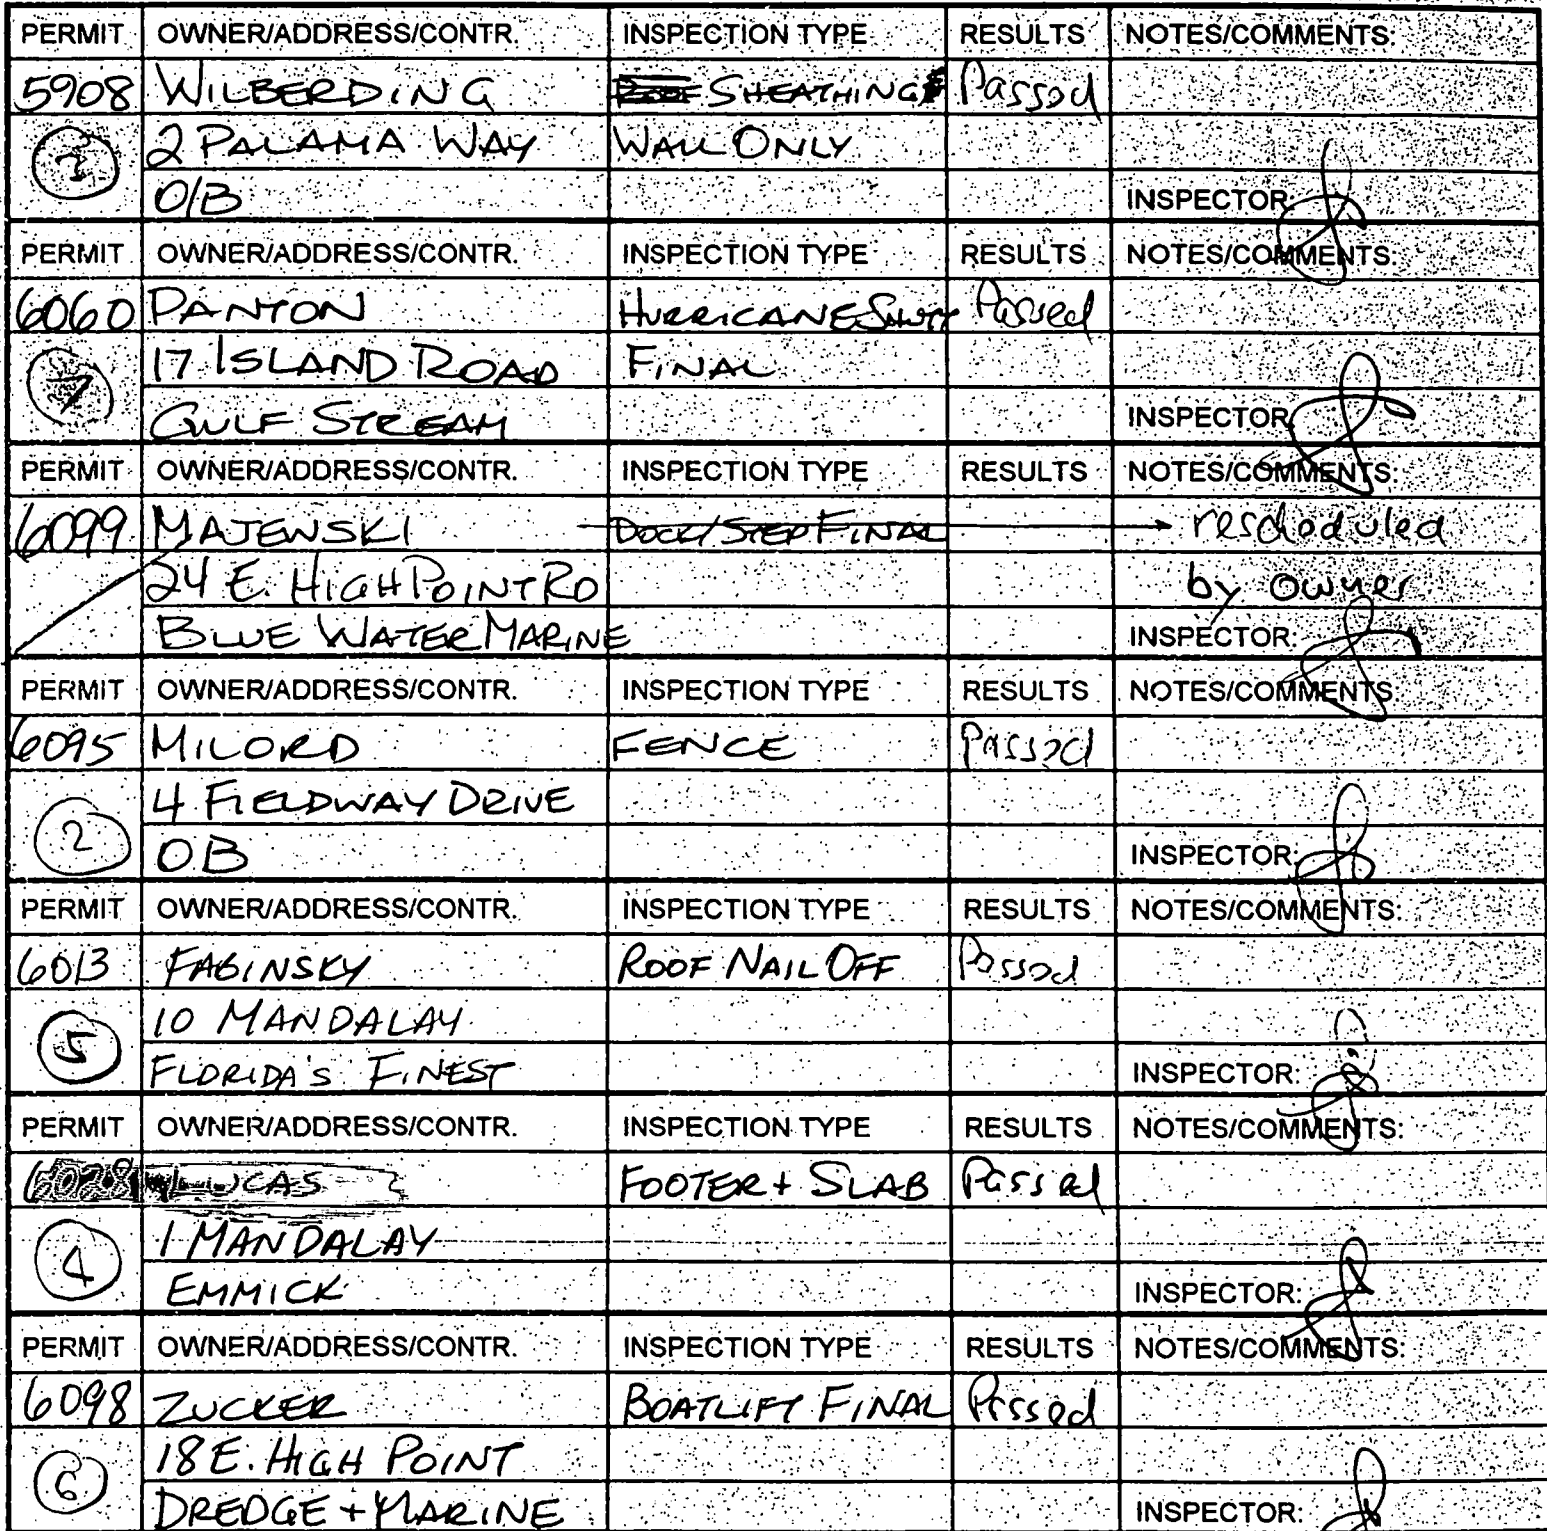 PERMIT OWNER/ADDRESS/CONTR. INSPECTION TYPE RESULTS NOTES/COMMENTS:
5908 WILBERDING ROOF SHEATHING Passed
2 PALAMA WAY WALL ONLY
O/B INSPECTOR:
PERMIT OWNER/ADDRESS/CONTR. INSPECTION TYPE RESULTS NOTES/COMMENTS:
6060 PANTON HURRICANE SHUTT Passed
7 17 ISLAND ROAD FINAL
GULF STREAM INSPECTOR
PERMIT OWNER/ADDRESS/CONTR. INSPECTION TYPE RESULTS NOTES/COMMENTS:
6099 MAJEWSKI DOCK/STEP FINAL rescheduled
24 E. HIGH POINT RD by owner
BLUE WATER MARINE INSPECTOR:
PERMIT OWNER/ADDRESS/CONTR. INSPECTION TYPE RESULTS NOTES/COMMENTS:
6095 MILORD FENCE Passed
2 4 FIELDWAY DRIVE
OB INSPECTOR:
PERMIT OWNER/ADDRESS/CONTR. INSPECTION TYPE RESULTS NOTES/COMMENTS:
6013 FABINSKY ROOF NAIL OFF Passed
5 10 MANDALAY
FLORIDA'S FINEST INSPECTOR:
PERMIT OWNER/ADDRESS/CONTR. INSPECTION TYPE RESULTS NOTES/COMMENTS:
6028 LUCAS FOOTER + SLAB Passed
4 1 MANDALAY
EMMICK INSPECTOR:
PERMIT OWNER/ADDRESS/CONTR. INSPECTION TYPE RESULTS NOTES/COMMENTS:
6098 ZUCKER BOATLIFT FINAL Passed
6 18 E. HIGH POINT
DREDGE + MARINE INSPECTOR: